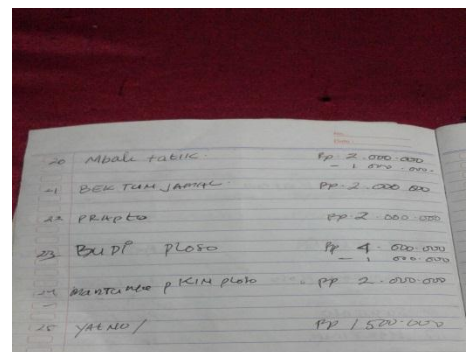 20 Mbak tatik. Rp. 2.000.000
- 1.000.000.
21 BEK TUM JAMAL Rp. 2.000.000
22 PRAPto Rp. 2.000.000
23 BUDP PLOSO Rp 4.000.000
- 1 000.000
24 P KIM PLOSO Rp 2.000.000
25 YATNO / Rp 1 500.000